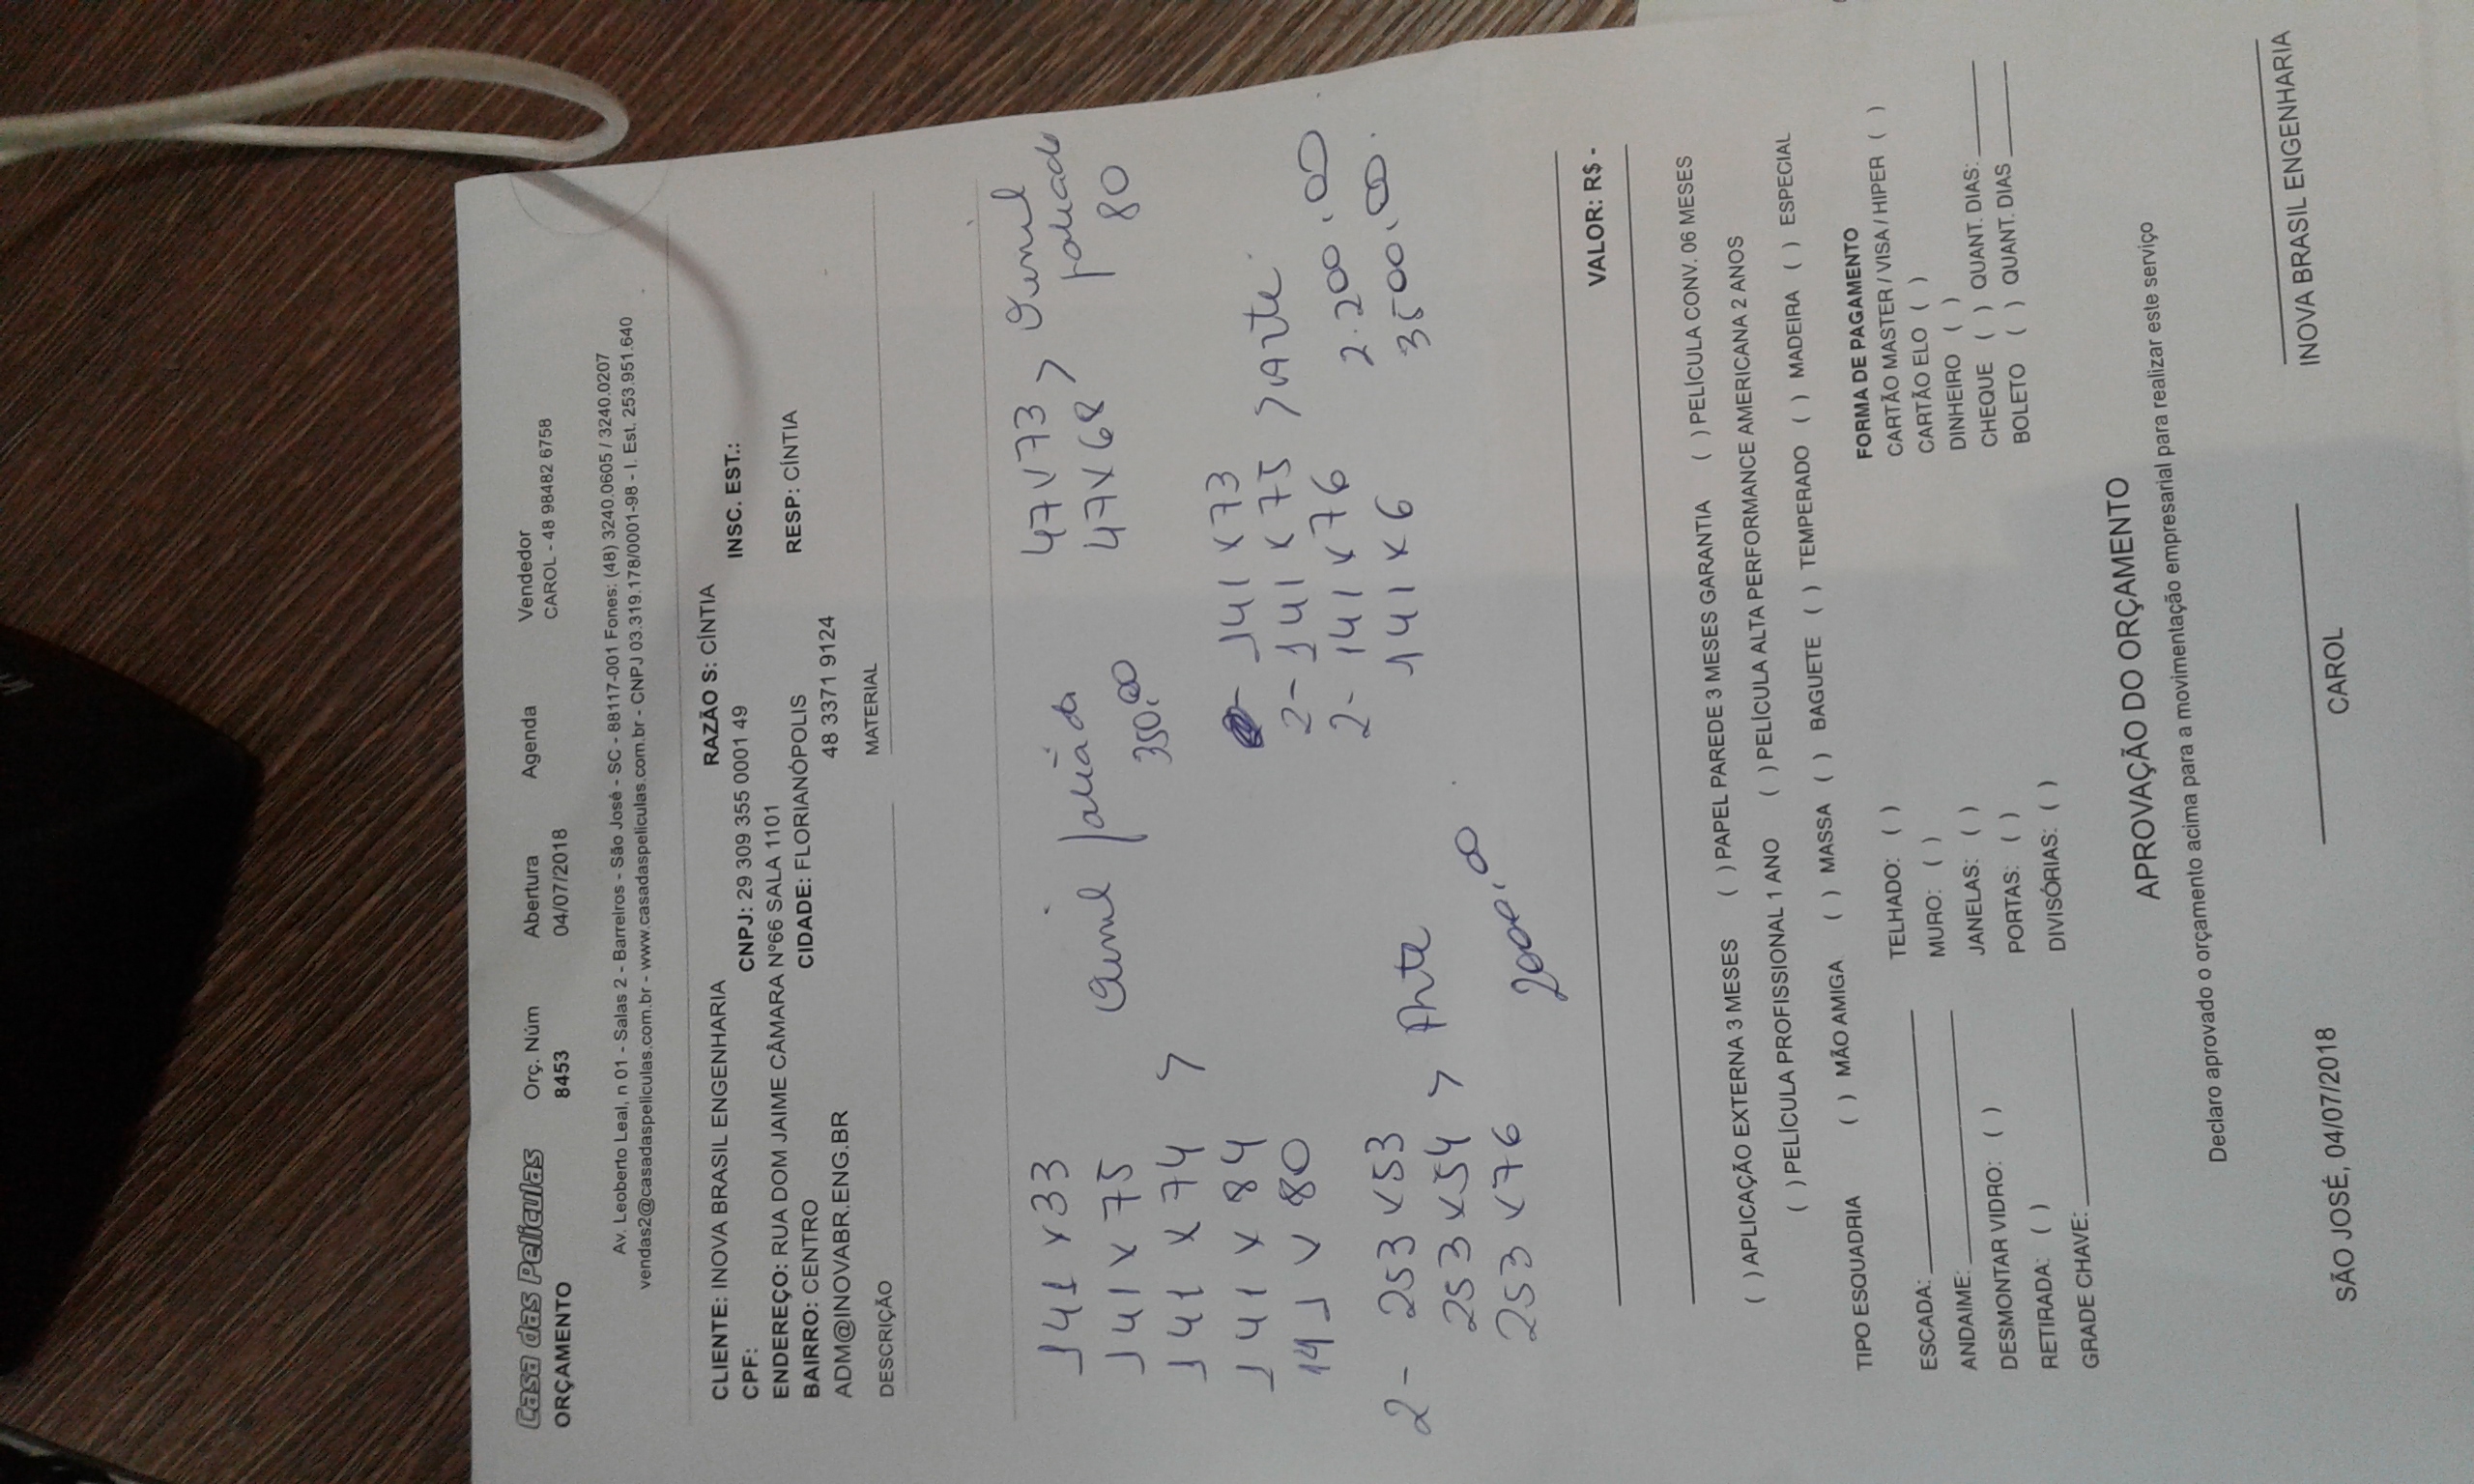 Casa das Películas Orç. Núm Abertura Agenda Vendedor
ORÇAMENTO 8453 04/07/2018 CAROL - 48 98482 6758
Av. Leoberto Leal, n 01 - Salas 2 - Barreiros - São José - SC - 88117-001 Fones: (48) 3240.0605 / 3240.0207
vendas2@casadaspeliculas.com.br - www.casadaspeliculas.com.br - CNPJ 03.319.178/0001-98 - I. Est. 253.951.640
CLIENTE: INOVA BRASIL ENGENHARIA RAZÃO S: CÍNTIA
CPF: CNPJ: 29 309 355 0001 49 INSC. EST.:
ENDEREÇO: RUA DOM JAIME CÂMARA Nº66 SALA 1101
BAIRRO: CENTRO CIDADE: FLORIANÓPOLIS RESP: CÍNTIA
ADM@INOVABR.ENG.BR 48 3371 9124
DESCRIÇÃO MATERIAL
141 x 33 47 x 73 >
141 x 75 47 x 68 80
141 x 74 > 350,00
141 x 84 141 x 73
141 x 80 2 - 141 x 75 > Arte
2 - 141 x 76 2.200,00
2 - 253 x 53 141 x 6 3500,00
253 x 54 > Arte
253 x 76 2000,00
VALOR: R$ -
( ) APLICAÇÃO EXTERNA 3 MESES ( ) PAPEL PAREDE 3 MESES GARANTIA ( ) PELÍCULA CONV. 06 MESES
( ) PELÍCULA PROFISSIONAL 1 ANO ( ) PELÍCULA ALTA PERFORMANCE AMERICANA 2 ANOS
TIPO ESQUADRIA ( ) MÃO AMIGA ( ) MASSA ( ) BAGUETE ( ) TEMPERADO ( ) MADEIRA ( ) ESPECIAL
ESCADA: TELHADO: ( ) FORMA DE PAGAMENTO
ANDAIME: MURO: ( ) CARTÃO MASTER / VISA / HIPER ( )
DESMONTAR VIDRO: ( ) JANELAS: ( ) CARTÃO ELO ( )
RETIRADA: ( ) PORTAS: ( ) DINHEIRO ( )
GRADE CHAVE: DIVISÓRIAS: ( ) CHEQUE ( ) QUANT. DIAS:
BOLETO ( ) QUANT. DIAS
APROVAÇÃO DO ORÇAMENTO
Declaro aprovado o orçamento acima para a movimentação empresarial para realizar este serviço
SÃO JOSÉ, 04/07/2018 CAROL INOVA BRASIL ENGENHARIA